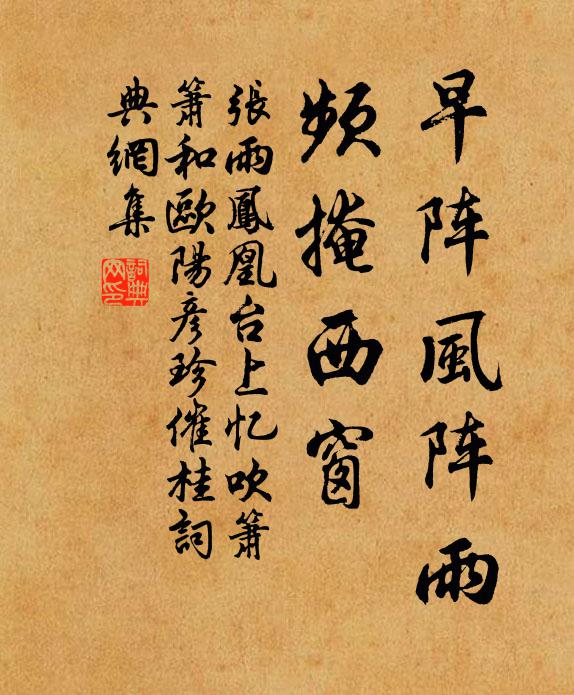 早阵風阵雨
頻掩西窗
張雨鳳凰台上忆吹簫
簫和歐陽彦珍催桂詞
典網集
詞典網印